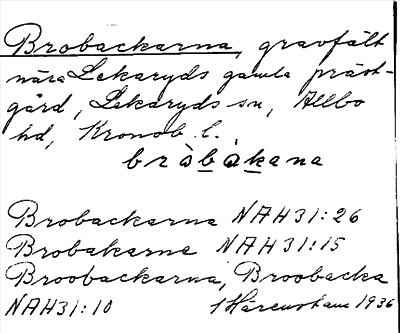 Brobackarna, gravfält
nära Lekaryds gamla präst-
gård, Lekaryds sn, Allbo
hd, Kronob. l.
bròbàkana
Brobackarna NAH31:26
Brobakarne NAH31:15
Broobackarna, Broobacka
NAH31:10 1936